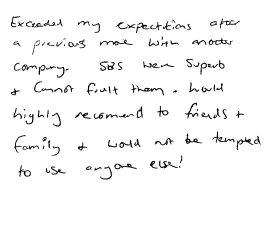 Exceeded my expectations after
a previous move with another
company. SBS were Superb
& Cannot fault them. Would
highly recomend to friends +
family & would not be tempted
to use anyone else!